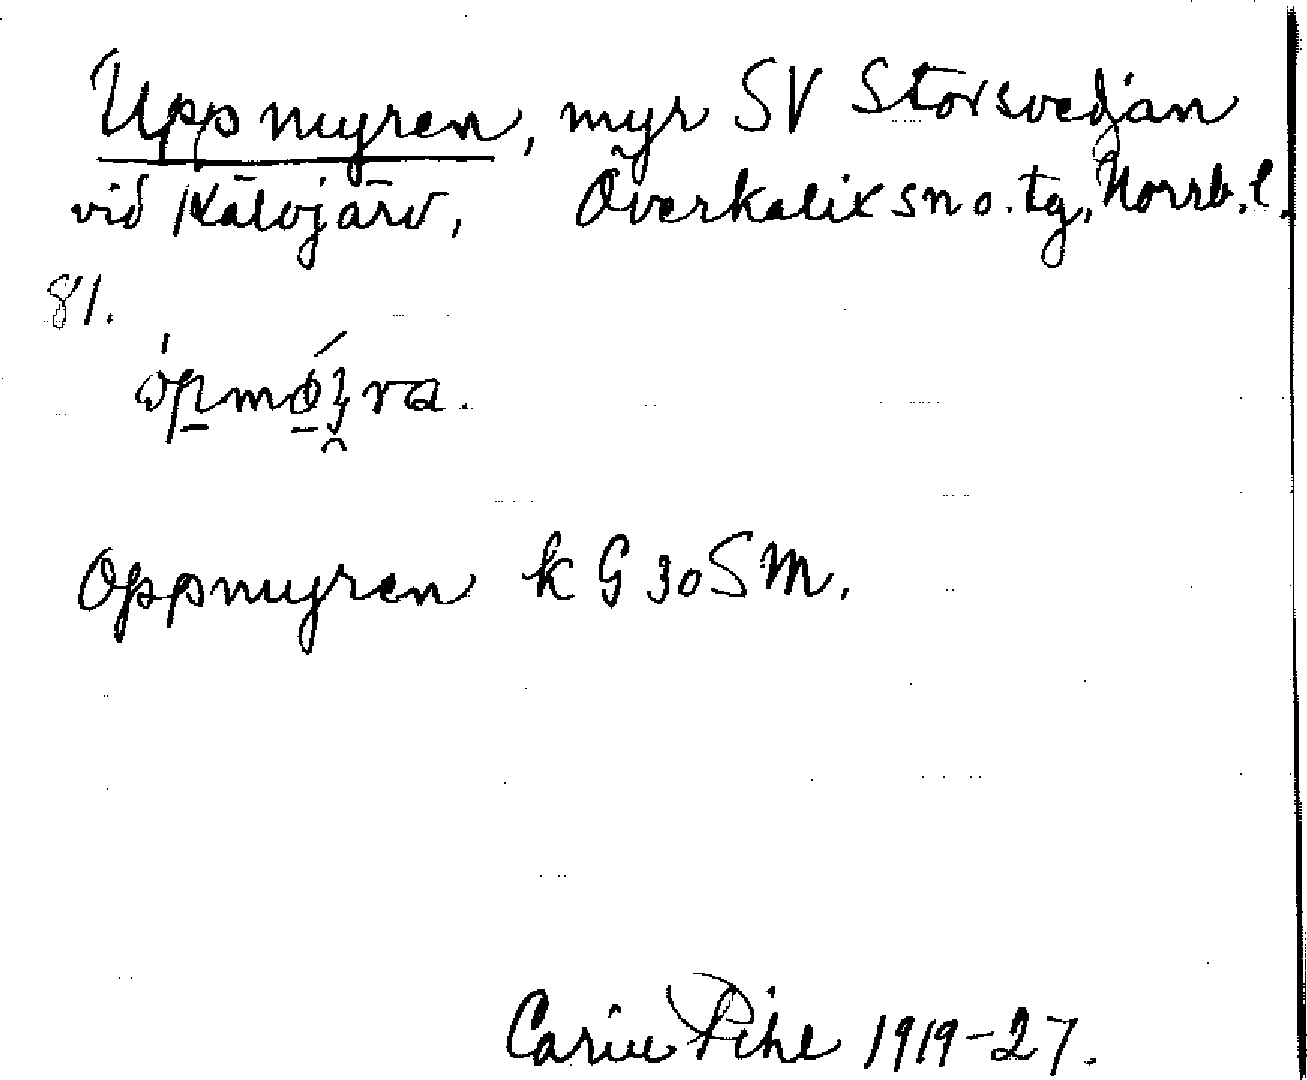 Uppmyren, myr SV Storsvedjan
vid Kälvjärv, Överkalix sn o. tg, Norrb. l.
81.
Oppmyren k G 30 S M.
Carin Pihl 1919-27.